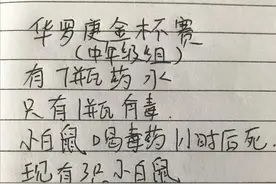 华罗庚金杯赛
(中年级组)
有7瓶药水
只有1瓶有毒.
小白鼠喝毒药1小时后死.
现有3只小白鼠